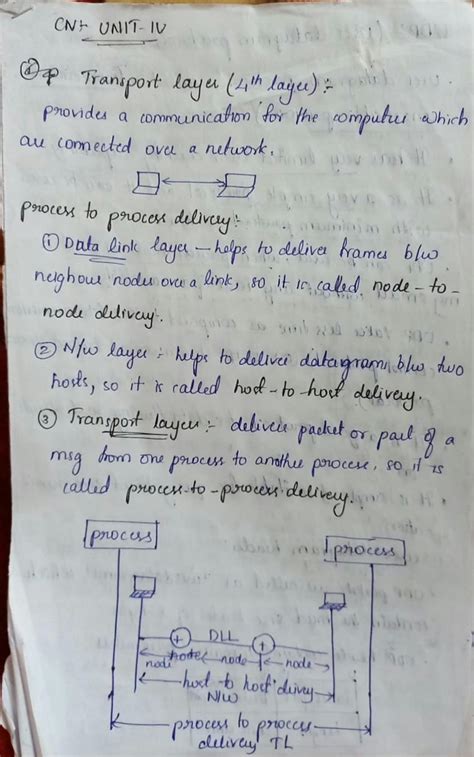 CN+ UNIT-IV
Transport layer (4th layer) :-
provides a communication for the computer which
are connected over a network.
process to process delivery:-
① Data link layer — helps to deliver frames b/w
neighour nodes over a link, so it is called node-to-
node delivery.
② N/w layer :- helps to deliver datagram b/w two
hosts, so it is called host-to-host delivery.
③ Transport layer :- delivers packet or part of a
msg from one process to another process, so it is
called process-to-process delivery.
process
process
DLL
node node node node
host to host delivery
N/W
process to process
delivery TL